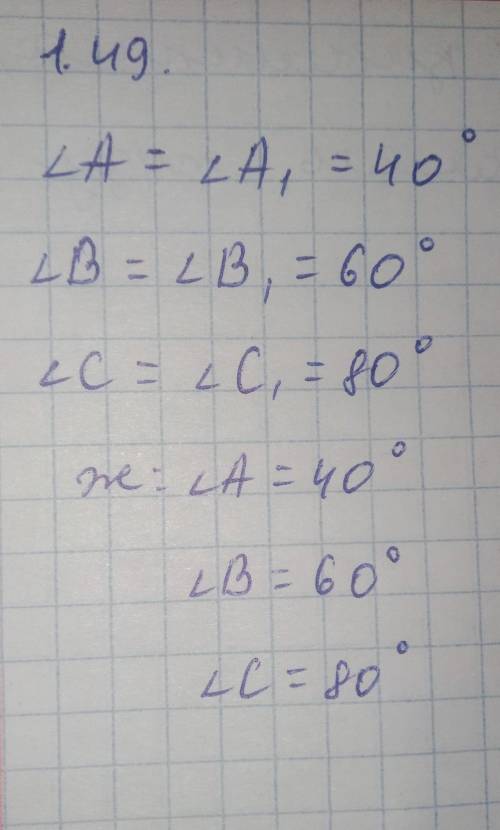 1.49.
∠A = ∠A₁ = 40°
∠B = ∠B₁ = 60°
∠C = ∠C₁ = 80°
ж: ∠A = 40°
∠B = 60°
∠C = 80°